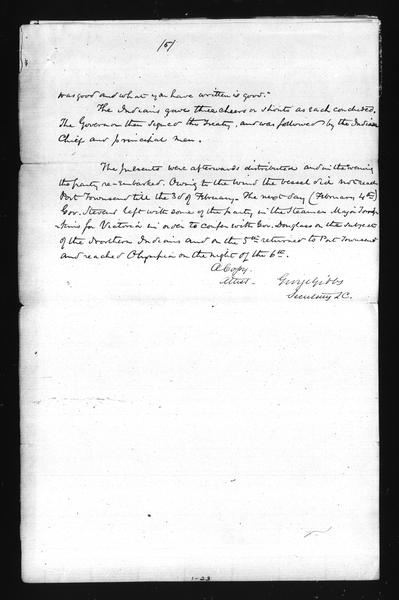 (5)
was good and what you have written is good."
The Indians gave three cheers or shouts as each concluded.
The Governor then signed the treaty, and was followed by the Indian
Chiefs and principal men.
The presents were afterwards distributed and in the evening
the party re-embarked. Owing to the wind the vessel did not reach
Port Townsend till the 3d of February. The next day (February 4th)
Gov. Stevens left with some of the party in the Steamer Major Tompkins
for Victoria in order to confer with Gov. Douglass on the subject
of the Northern Indians and on the 5th returned to Port Townsend
and reached Olympia on the night of the 6th.
A Copy.
Attest - George Gibbs
Secretary &C.
1-23